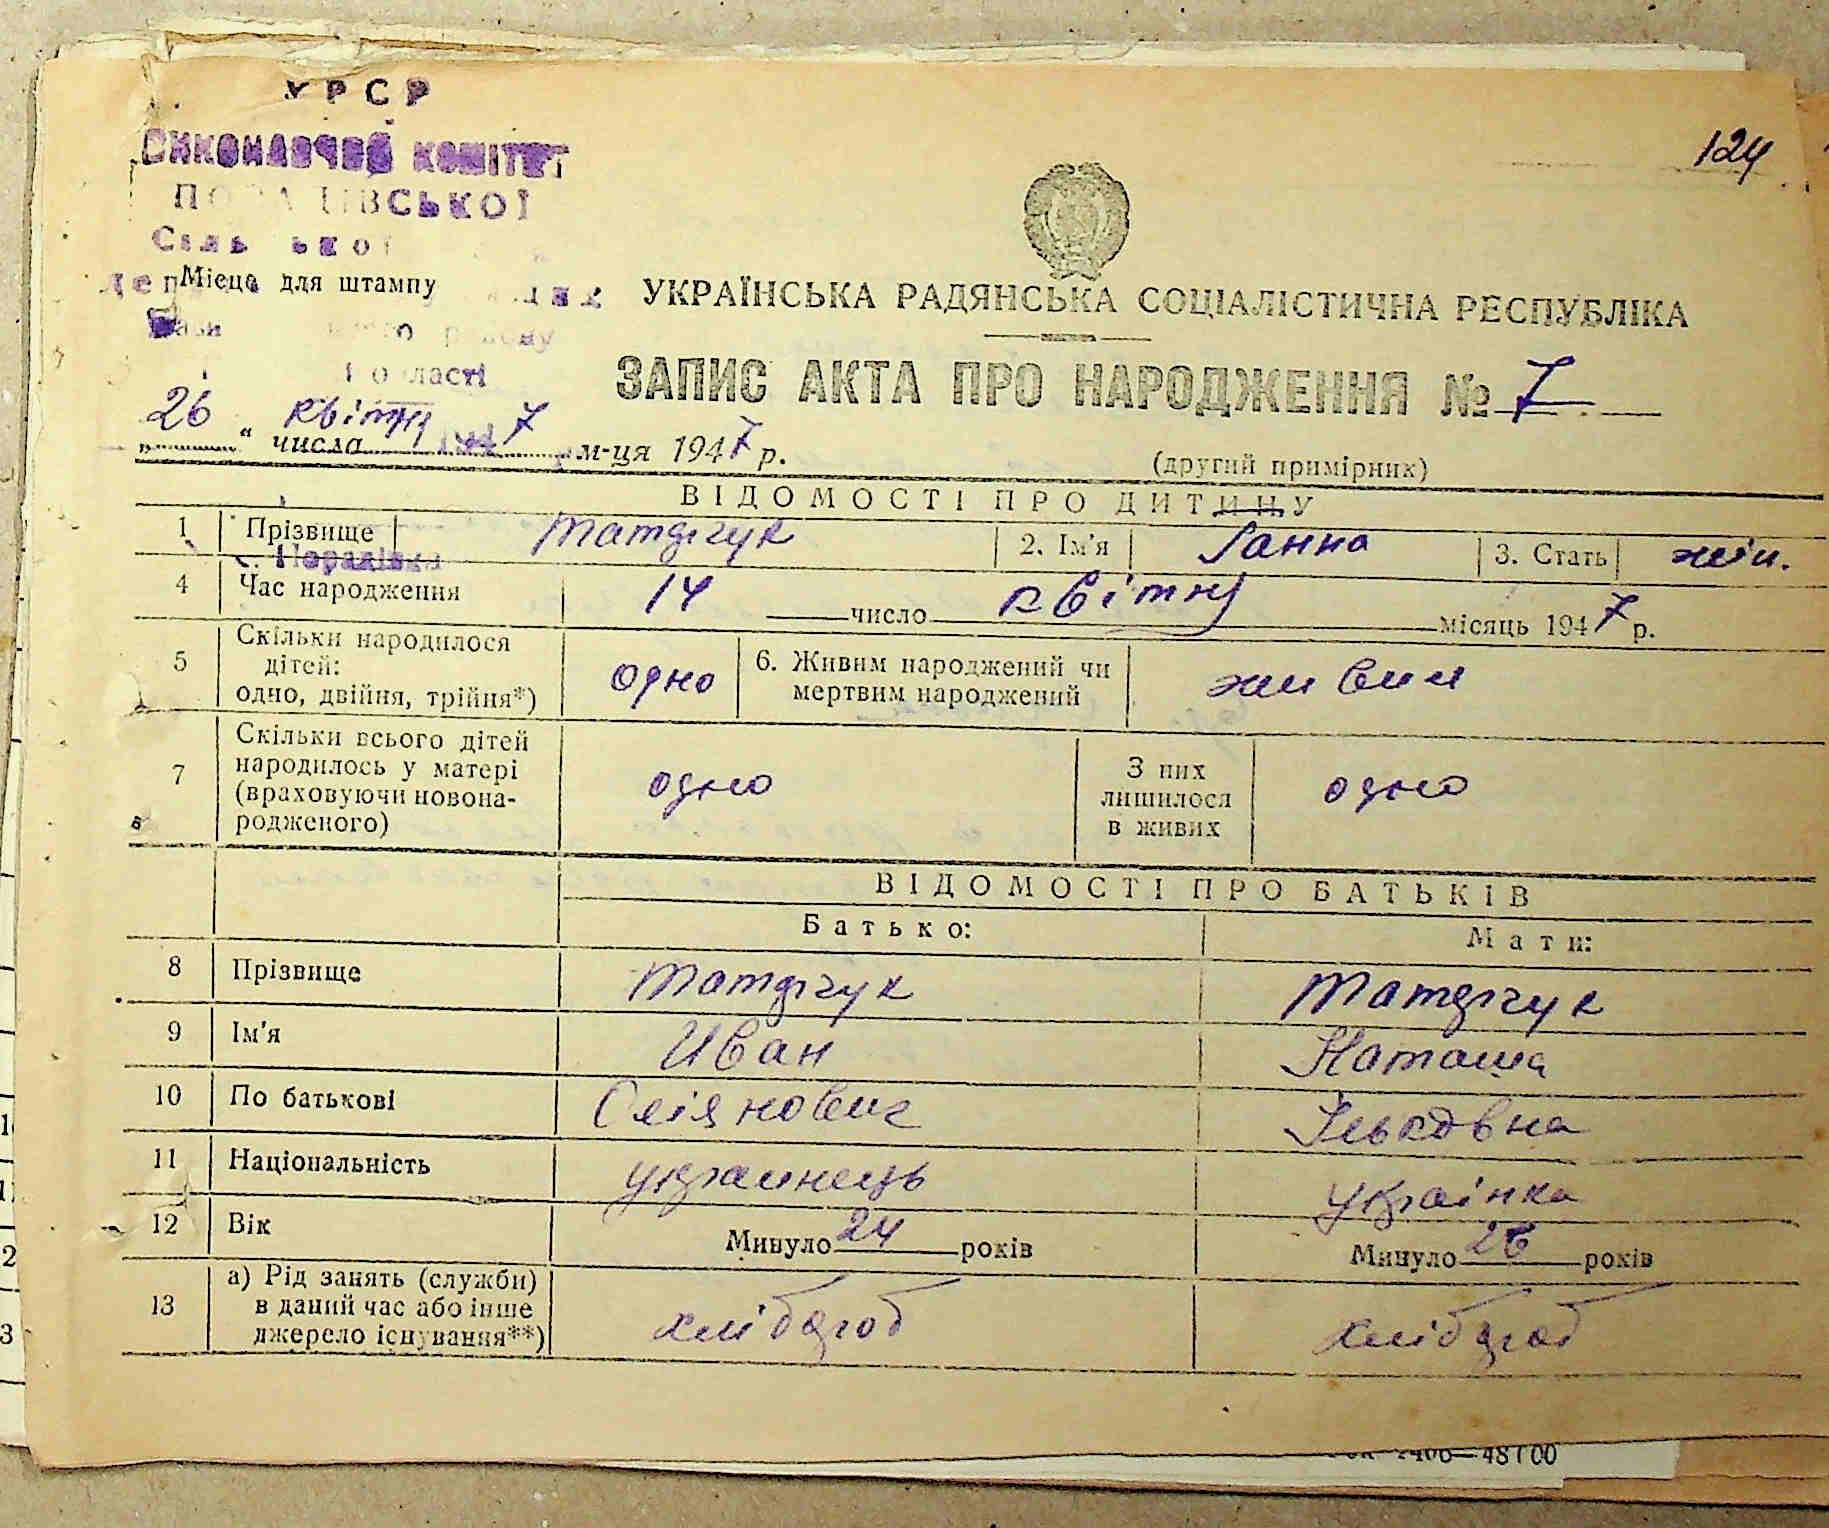 УРСР
124
ВИКОНАВЧИЙ КОМІТЕТ
Місце для штампу
УКРАЇНСЬКА РАДЯНСЬКА СОЦІАЛІСТИЧНА РЕСПУБЛІКА
ЗАПИС АКТА ПРО НАРОДЖЕННЯ № 7
26 " числа квітня м-ця 1947 р.
(другий примірник)
ВІДОМОСТІ ПРО ДИТИНУ
1 Прізвище 2. Ім'я Ганна 3. Стать жін.
с. Порадівка
4 Час народження 14 число квітня місяць 1947 р.
5 Скільки народилося дітей: одно, двійня, трійня*) одно 6. Живим народжений чи мертвим народжений живим
7 Скільки всього дітей народилось у матері (враховуючи новонародженого) одно З них лишилося в живих одно
ВІДОМОСТІ ПРО БАТЬКІВ
Батько: Мати:
8 Прізвище
9 Ім'я Иван Наташа
10 По батькові Ільковна
11 Національність украинець українка
12 Вік Минуло 24 років Минуло 26 років
13 а) Рід занять (служби) в даний час або інше джерело існування**) хлібороб хлібороб